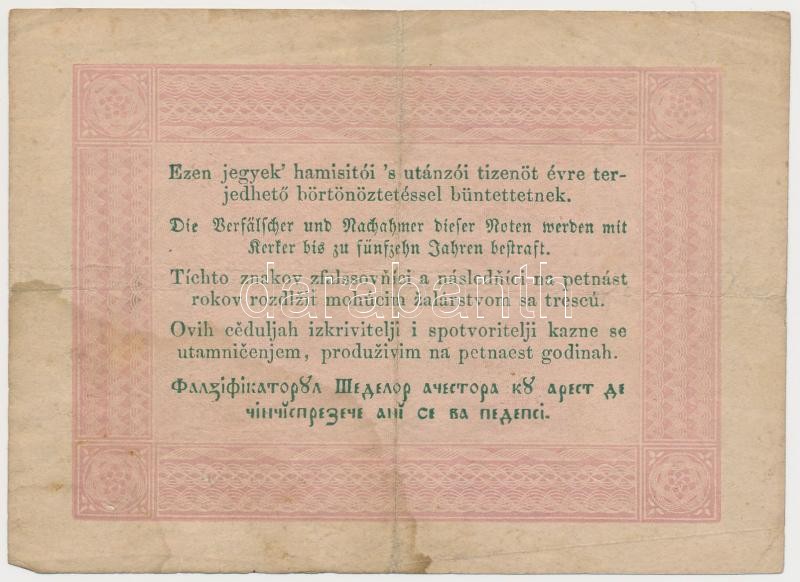 Ezen jegyek’ hamisitói ’s utánzói tizenöt évre ter-
jedhető börtönöztetéssel büntettetnek.
Die Verfälscher und Nachahmer dieser Noten werden mit
Kerker bis zu fünfzehn Jahren bestraft.
Tíchto znakov zfalssovňíci a následňíci na petnást
rokov rozdlžit mohúcim žalárstvom sa trescú.
darabanth
Ovih cěduljah izkrivitelji i spotvoritelji kazne se
utamničenjem, produživim na petnaest godinah.
Фалзіфікаторꙋл Шеделор ачестора кꙋ арест де
чінчіспрезече ані се ва педепсі.